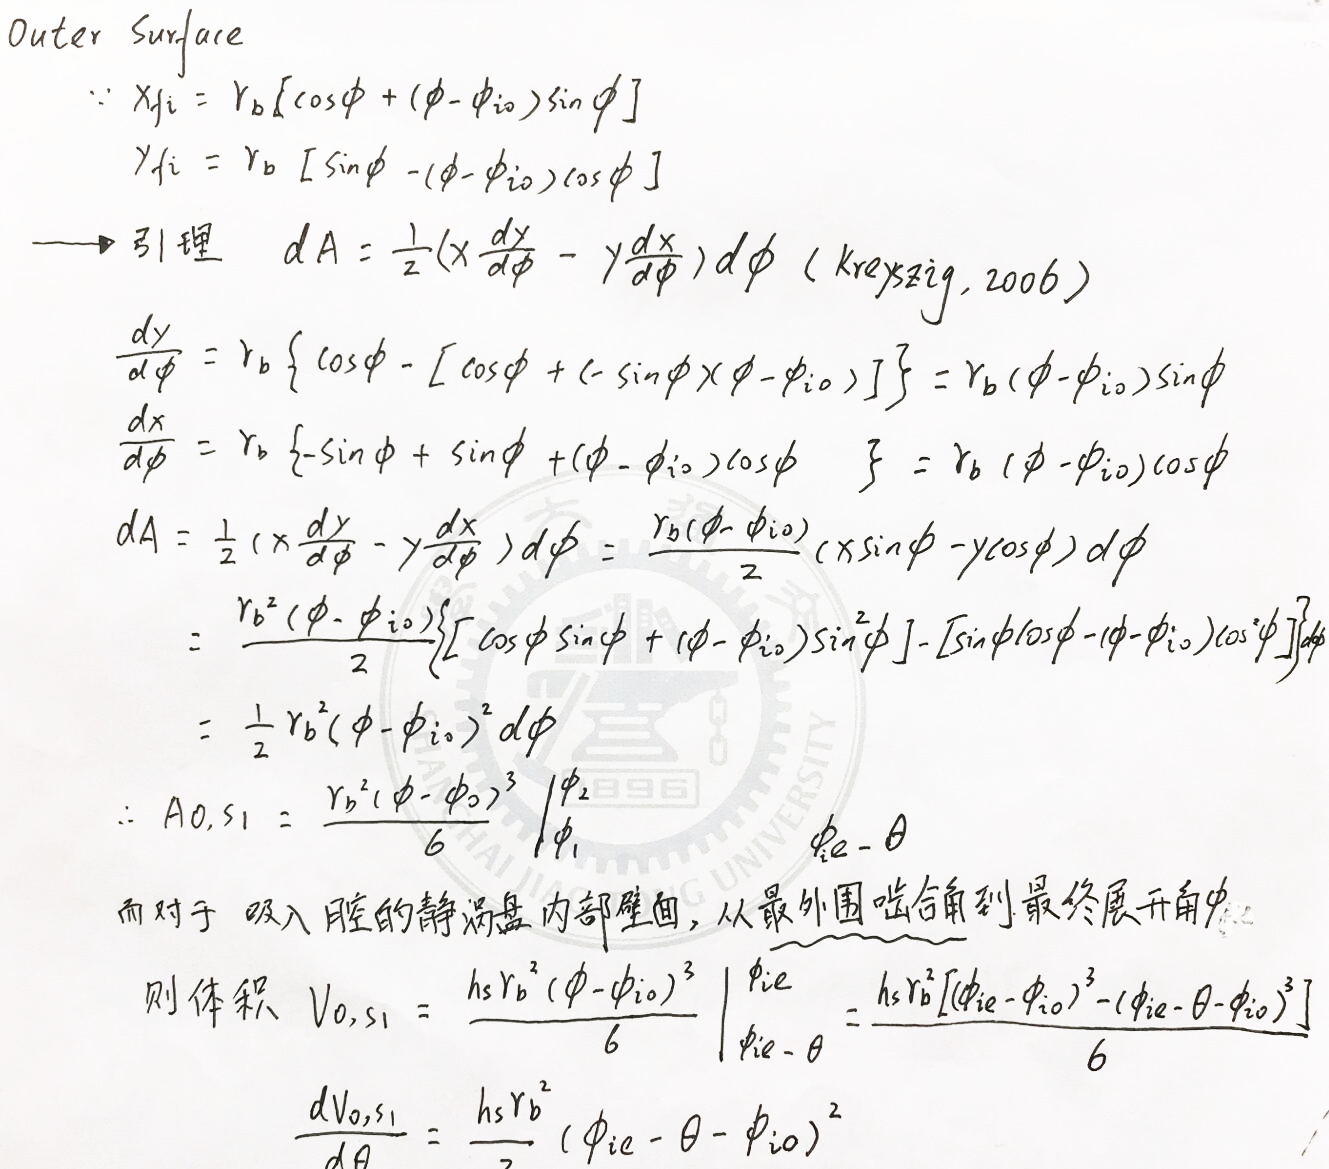 Outer Surface
∵ x_{fi} = r_b[cosϕ + (ϕ-ϕ_{io})sinϕ]
y_{fi} = r_b [sinϕ -(ϕ-ϕ_{io})cosϕ]
→ 引理 dA = \frac{1}{2}(x\frac{dy}{dϕ} - y\frac{dx}{dϕ})dϕ (Kreyszig, 2006)
\frac{dy}{dϕ} = r_b{cosϕ - [cosϕ + (-sinϕ)(ϕ-ϕ_{io})]} = r_b(ϕ-ϕ_{io})sinϕ
\frac{dx}{dϕ} = r_b{-sinϕ + sinϕ +(ϕ-ϕ_{io})cosϕ} = r_b(ϕ-ϕ_{io})cosϕ
dA = \frac{1}{2}(x\frac{dy}{dϕ} - y\frac{dx}{dϕ})dϕ = \frac{r_b(ϕ-ϕ_{io})}{2}(xsinϕ-ycosϕ)dϕ
= \frac{r_b^2(ϕ-ϕ_{io})}{2}{[cosϕsinϕ + (ϕ-ϕ_{io})sin^2ϕ]-[sinϕcosϕ-(ϕ-ϕ_{io})cos^2ϕ]}dϕ
= \frac{1}{2}r_b^2(ϕ-ϕ_{io})^2dϕ
∴ A_{O,S1} = \frac{r_b^2(ϕ-ϕ_0)^3}{6} |_{ϕ_1}^{ϕ_2}
ϕ_{ie}-θ
而对于 吸入腔的静涡盘内部壁面, 从最外围啮合角到最终展开角ϕ
则体积 V_{O,S1} = \frac{h_s r_b^2(ϕ-ϕ_{io})^3}{6} |_{ϕ_{ie}-θ}^{ϕ_{ie}} = \frac{h_s r_b^2[(ϕ_{ie}-ϕ_{io})^3-(ϕ_{ie}-θ-ϕ_{io})^3]}{6}
\frac{dV_{O,S1}}{dθ} = \frac{h_s r_b^2}{2}(ϕ_{ie}-θ-ϕ_{io})^2
1896
SHANGHAI JIAO TONG UNIVERSITY